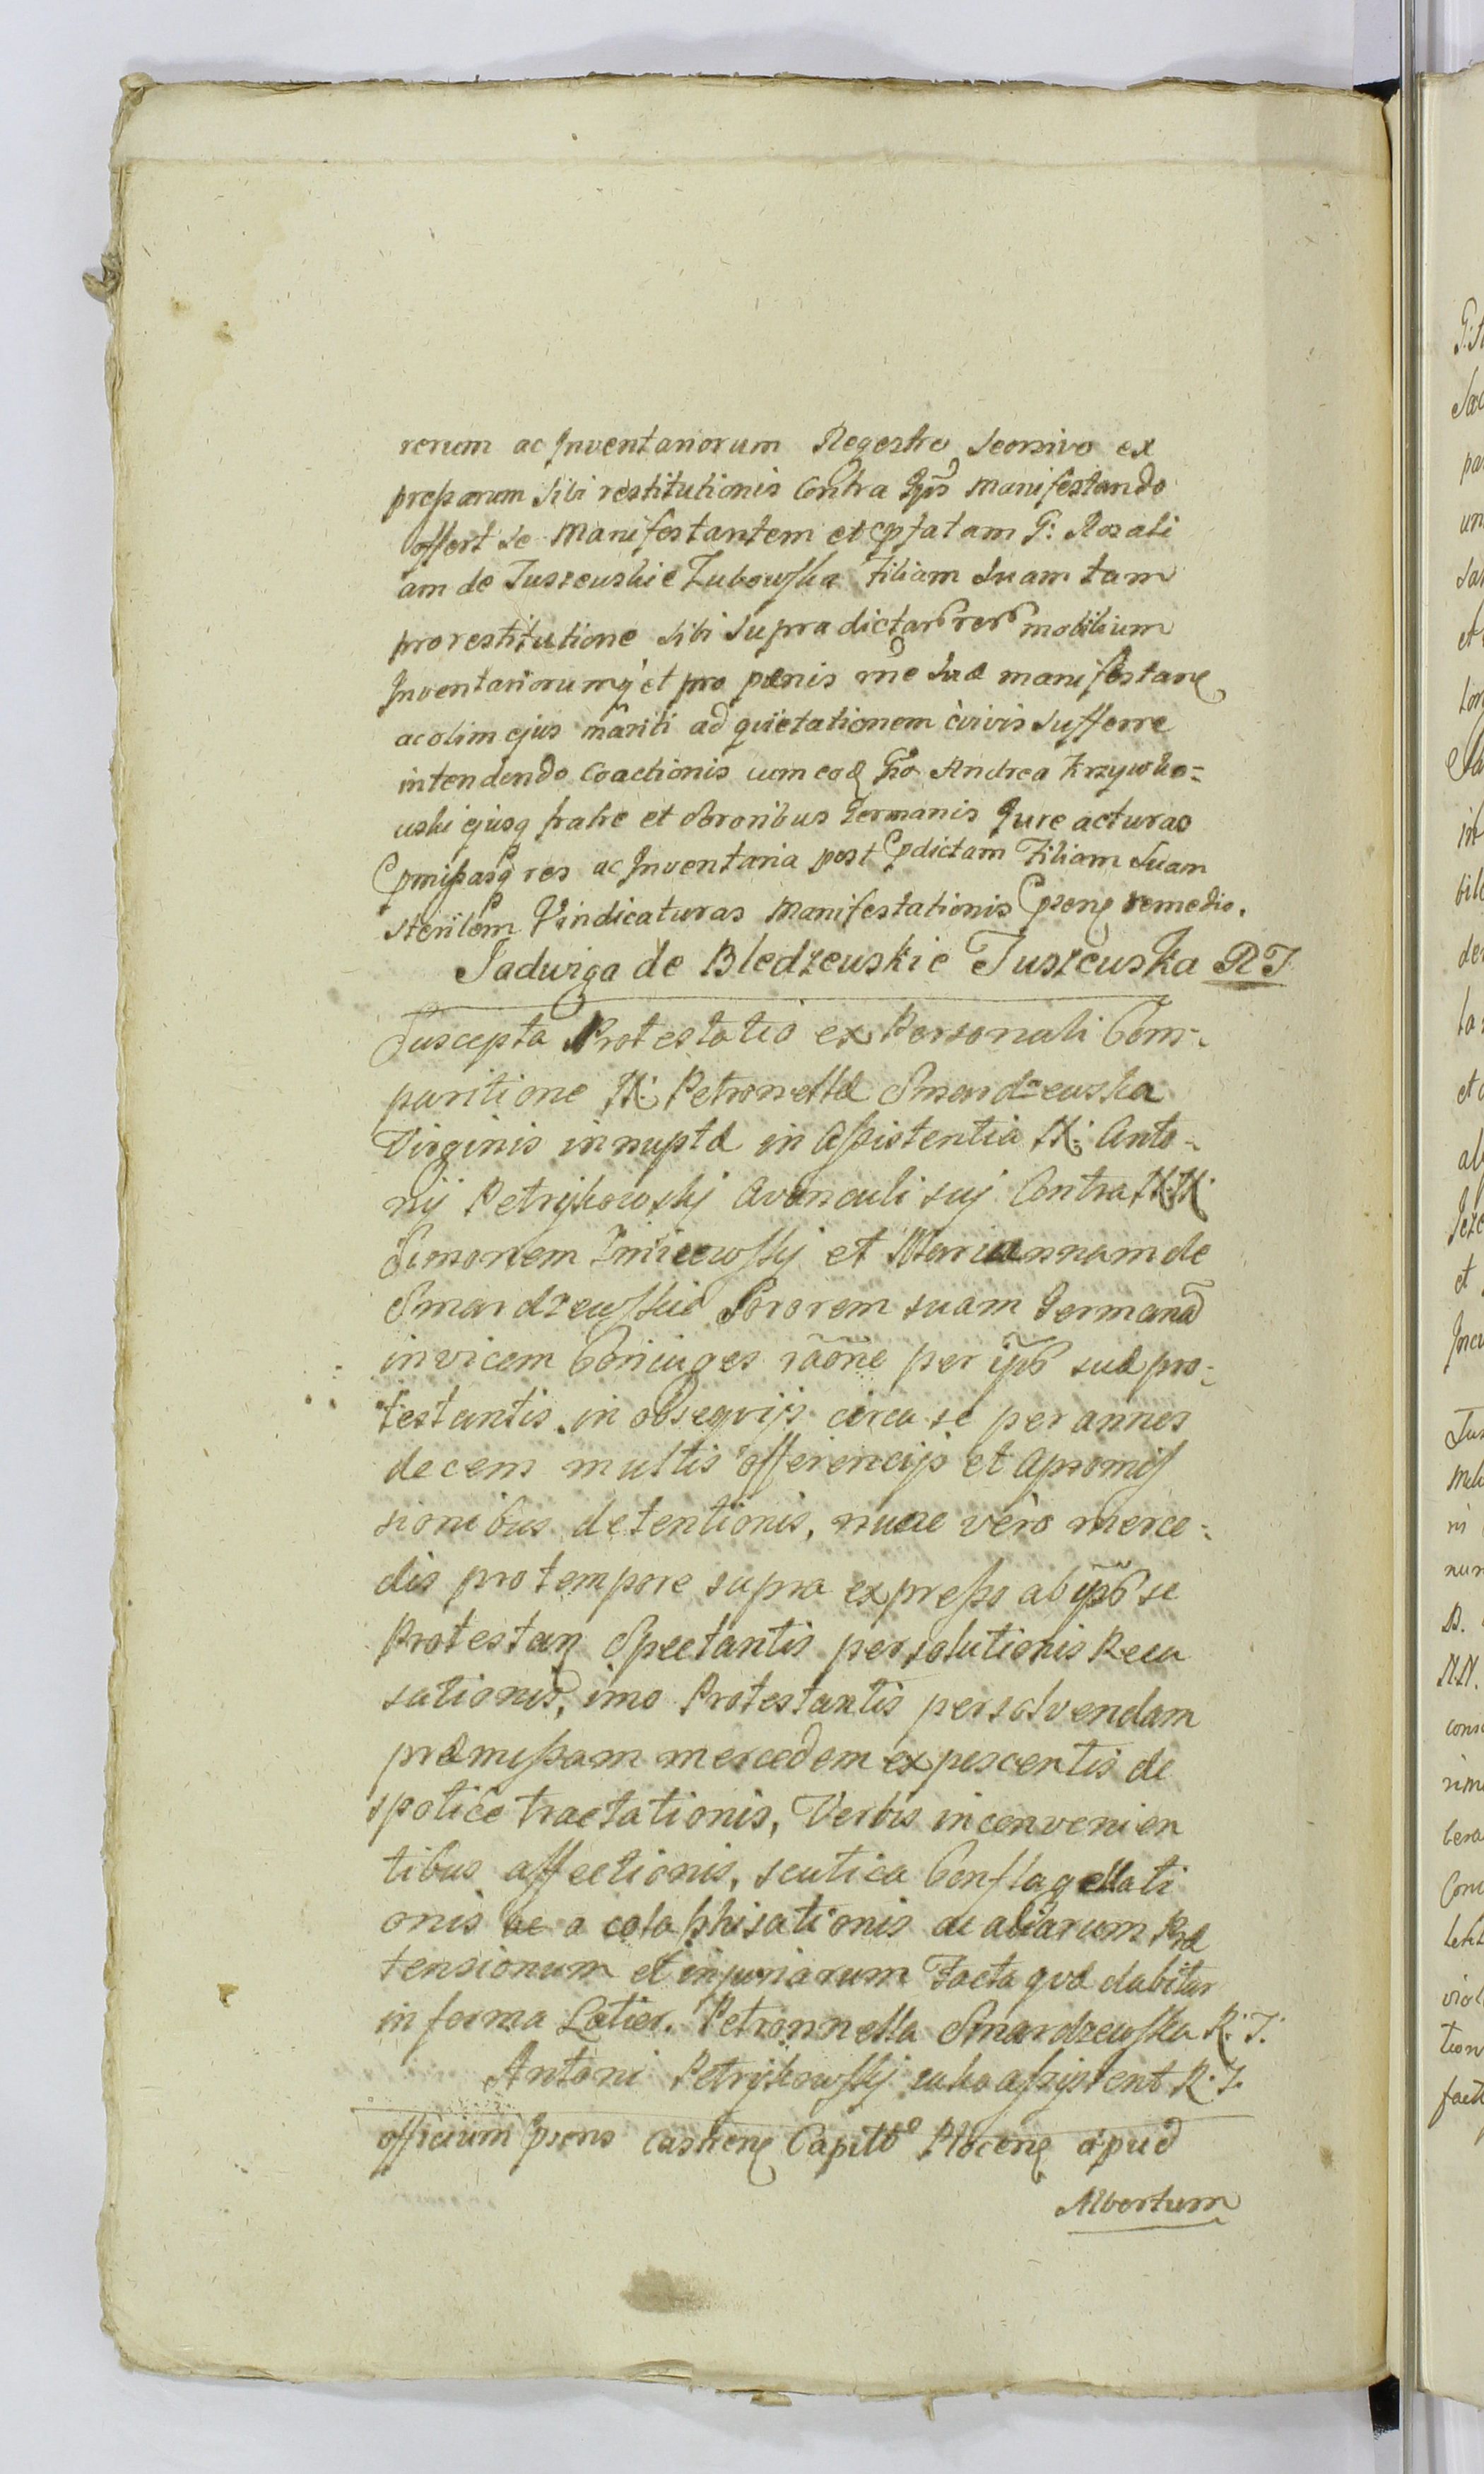 rerum ac Inventariorum Regestro seorsivo ex
pressarum sibi restitutionis contra Ipõs manifestando
offert se Manifestantem et pfatam G: Rosali
am de Juszewskie Zubowska Filiam Suam tam
pro restitutione sibi supra dictar rer mobilium
Inventariorumq et pro pænis rñe suæ manifestan
ac olim ejus mariti ad quietationem civis sufferre
intendendo coactionis cum eod Gso Andrea Krzywko=
wski ejusq fratre et sororibus Germanis Jure acturas
pmissasq res ac Inventaria post pdictam Filiam Suam
sterilem Vindicaturas Manifestationis psen remedio.
Jadwiga de Bledzewskie Juszewska RJ
Suscepta Protestatio ex Personali Com-
paritione N: Petronellæ Smardzewska
Virginis innuptæ in assistentia N: Anto-
nij Petrykowskj avunculi suj Contra N.N.
Simonem et Mariannam de
Smardzewskie Sororem suam Germanã
invicem Coniuges rãõne per ipõs suæ pro-
testantis in obsequijs circa se per annos
decem multis offerencijs et apromis
sionibus detentionis, nunc vero merce-
dis pro tempore supra expresso ab ipõs se
Protestan Spectantis persolutionis Recu
sationis, imo Protestantis persolvendam
præmissam mercedem exposcentis de
spotice tractationis, Verbis inconvenien
tibus affectionis, scutica Conflagellati
onis ac a colaphisationis ac aliarum Præ
tensionum et injuriarum Facta qvæ dabitur
in forma Latior. Petronnella Smardzewska R: J:
Antoni Petrykowskj jako assystent R. J.
officium psens Castren Capitl Plocen apud
Albertum